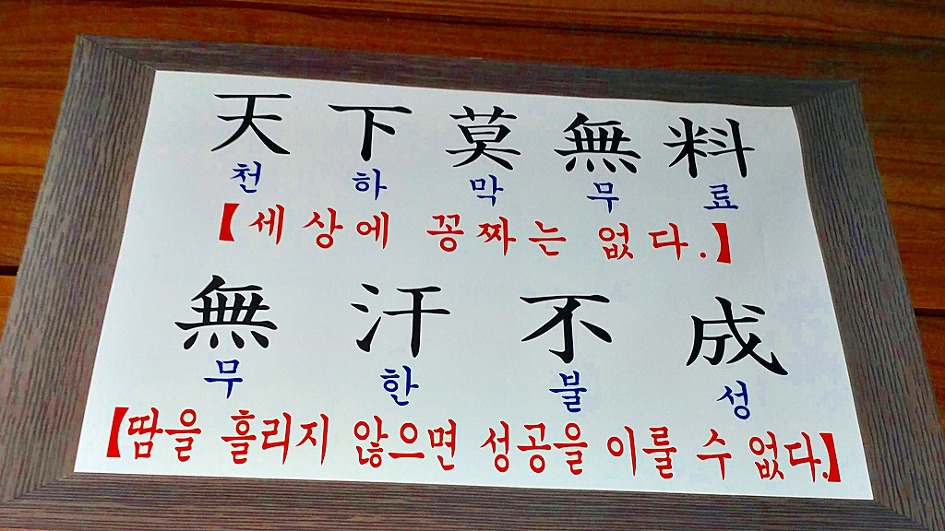 天 下 莫 無 料
천 하 막 무 료
【세상에 꽁짜는 없다.】
無 汗 不 成
무 한 불 성
【땀을 흘리지 않으면 성공을 이룰 수 없다.】